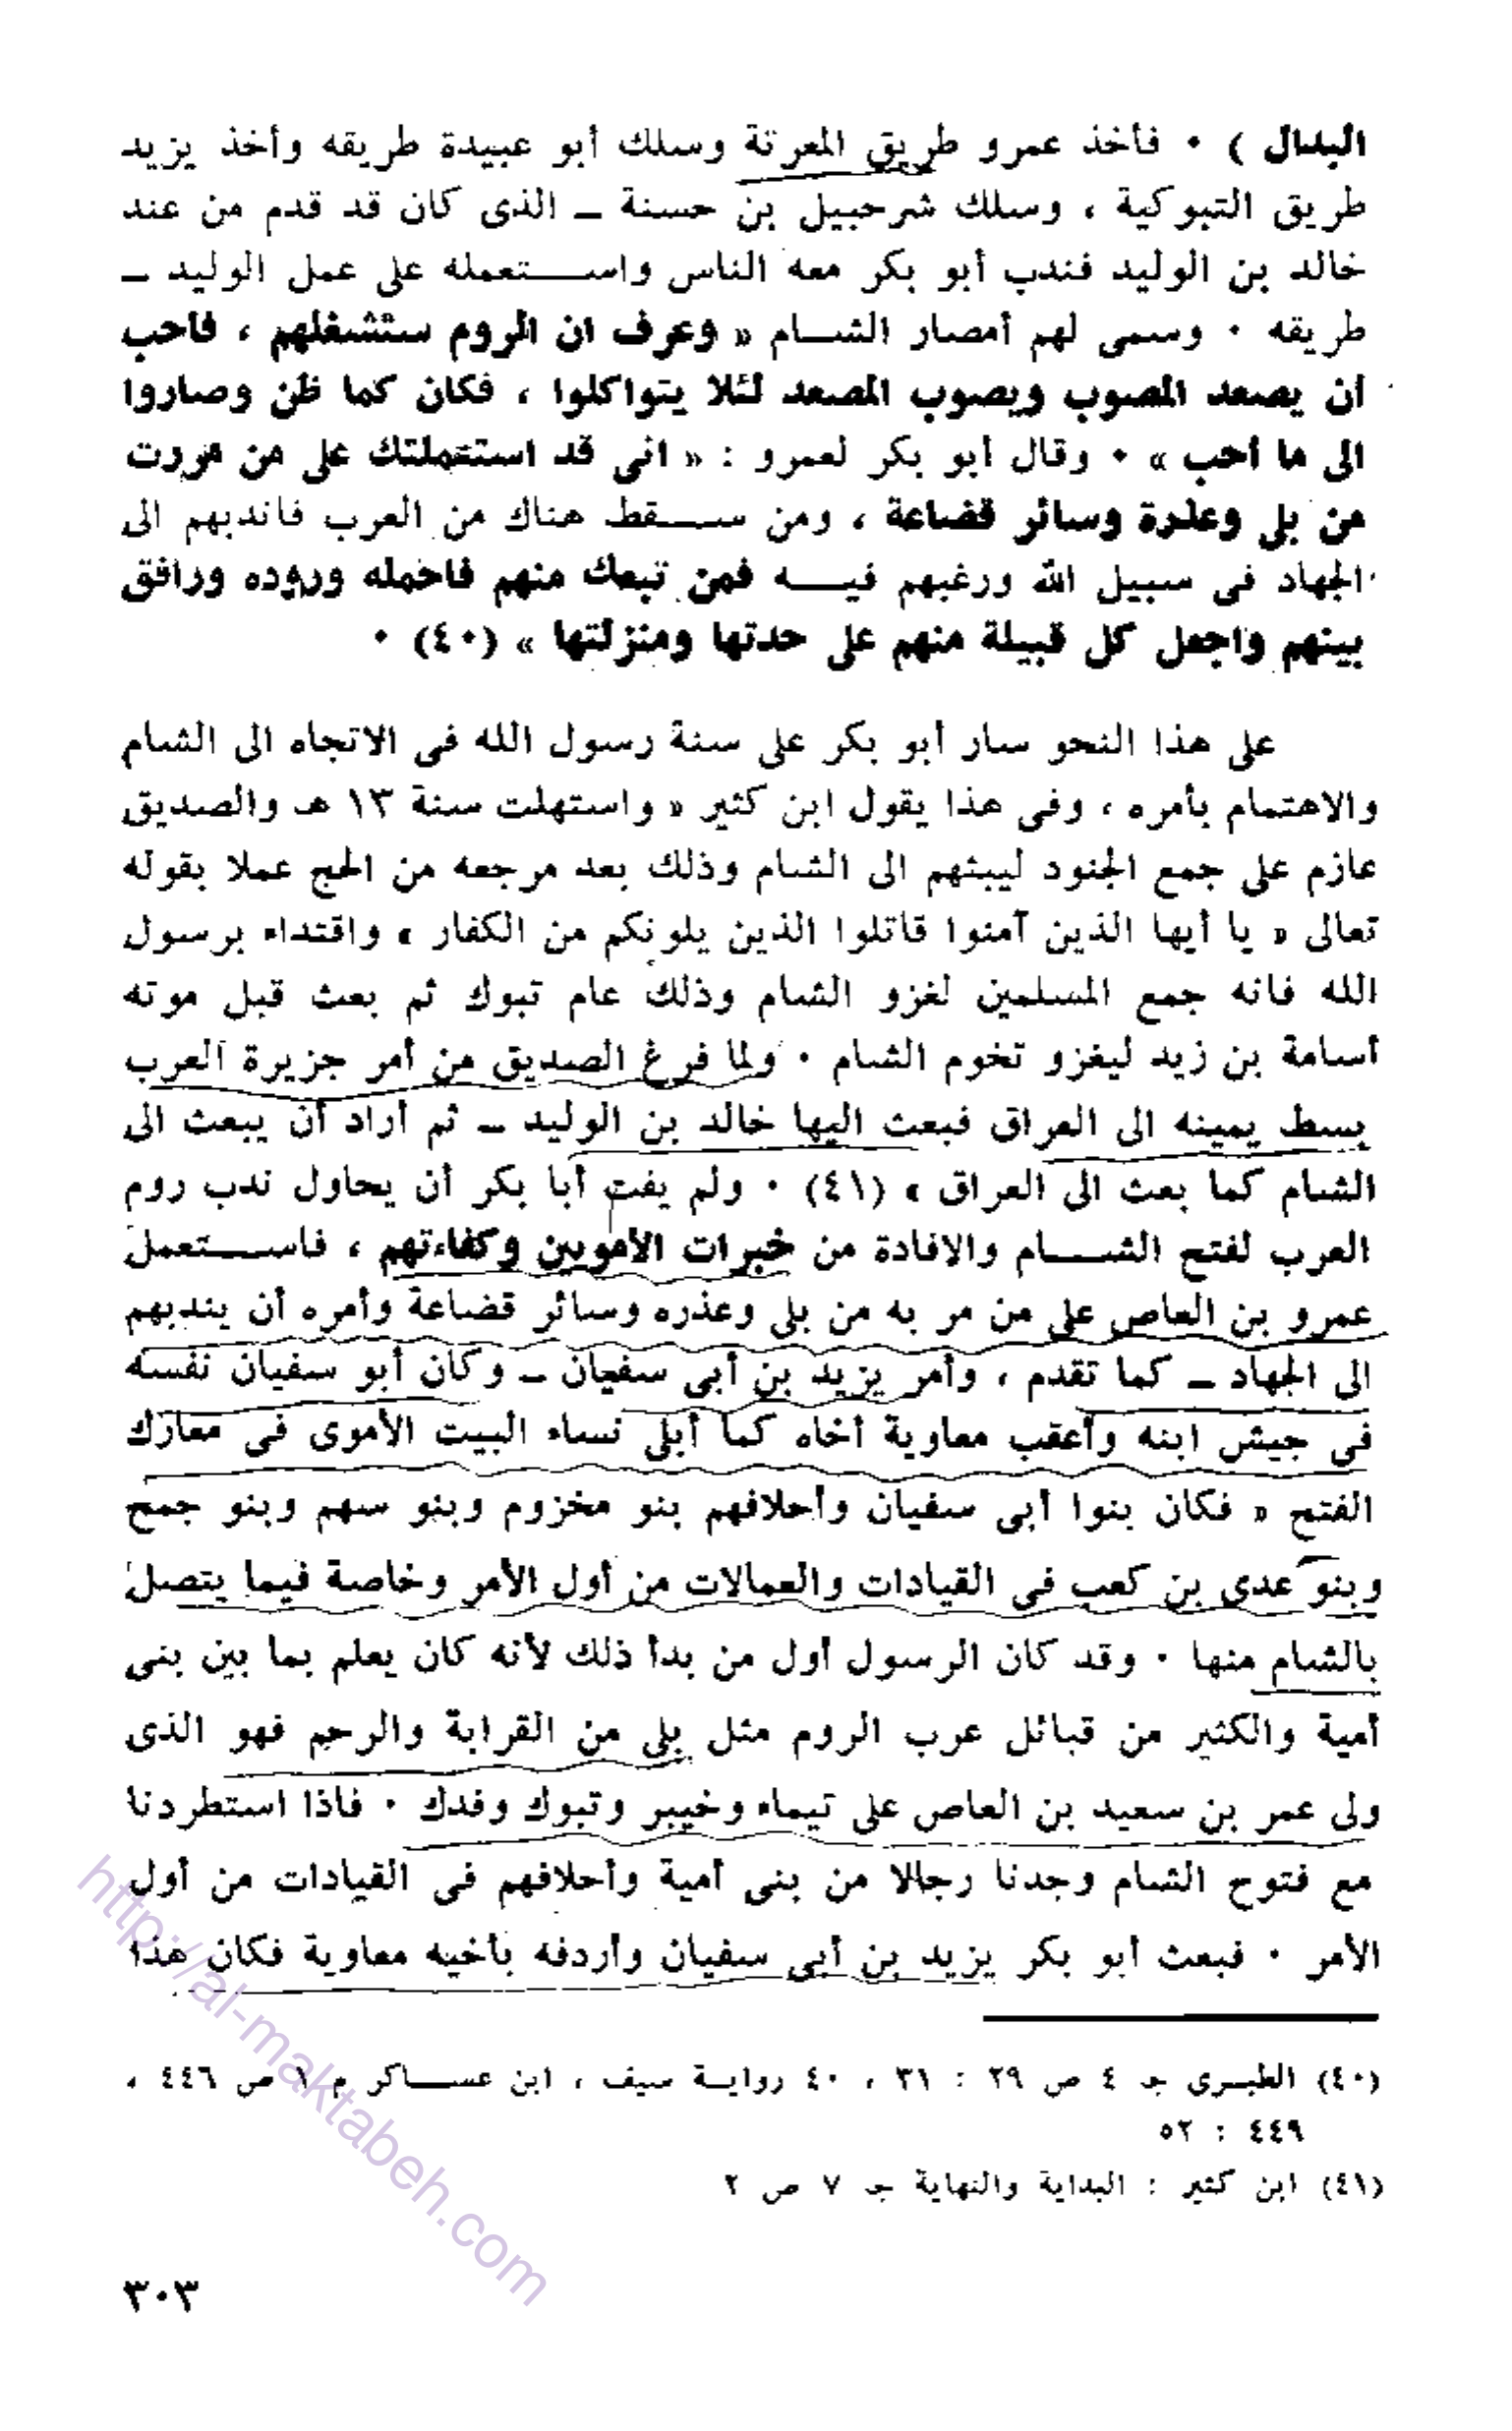 البدال ) ٠ فأخذ عمرو طريق المعرتة وسلك أبو عبيدة طريقه وأخذ يزيد
طريق التبوكية ، وسلك شرحبيل بن حسنة ــ الذى كان قد قدم من عند
خالد بن الوليد فندب أبو بكر معه الناس واســـتعمله على عمل الوليد ــ
طريقه ٠ وسمى لهم أمصار الشـــام « وعرف ان الروم ستشغلهم ، فأحب
ان يصعد المصوب ويصوب المصعد لئلا يتواكلوا ، فكان كما ظن وصاروا
الى ما أحب » ٠ وقال أبو بكر لعمرو : « انى قد استعملتك على من مررت
من بلى وعذرة وسائر قضاعة ، ومن ســـقط هناك من العرب فاندبهم الى
الجهاد فى سبيل الله ورغبهم فيـــه فمن تبعك منهم فاحمله وروده ورافق
بينهم واجعل كل قبيلة منهم على حدتها ومنزلتها » (٤٠) ٠
على هذا النحو سار أبو بكر على سنة رسول الله فى الاتجاه الى الشام
والاهتمام بأمره ، وفى هذا يقول ابن كثير « واستهلت سنة ١٣ هـ والصديق
عازم على جمع الجنود ليبثهم الى الشام وذلك بعد مرجعه من الحج عملا بقوله
تعالى « يا أيها الذين آمنوا قاتلوا الذين يلونكم من الكفار » واقتداء برسول
الله فانه جمع المسلمين لغزو الشام وذلك عام تبوك ثم بعث قبل موته
أسامة بن زيد ليغزو تخوم الشام ٠ ولما فرغ الصديق من أمر جزيرة العرب
بسط يمينه الى العراق فبعث اليها خالد بن الوليد ــ ثم أراد أن يبعث الى
الشام كما بعث الى العراق » (٤١) ٠ ولم يفت أبا بكر أن يحاول ندب روم
العرب لفتح الشـــام والافادة من خبرات الأمويين وكفاءتهم ، فاســـتعمل
عمرو بن العاص على من مر به من بلى وعذره وسائر قضاعة وأمره أن يندبهم
الى الجهاد ــ كما تقدم ، وأمر يزيد بن أبى سفيان ــ وكان أبو سفيان نفسه
فى جيش ابنه وأعقب معاوية أخاه كما أبلى نساء البيت الأموى فى معارك
الفتح « فكان بنوا أبى سفيان وأحلافهم بنو مخزوم وبنو سهم وبنو جمح
وبنو عدى بن كعب فى القيادات والعمالات من أول الأمر وخاصة فيما يتصل
بالشام منها ٠ وقد كان الرسول أول من بدأ ذلك لأنه كان يعلم بما بين بنى
أمية والكثير من قبائل عرب الروم مثل بلى من القرابة والرحم فهو الذى
ولى عمر بن سعيد بن العاص على تيماء وخيبر وتبوك وفدك ٠ فاذا استطردنا
مع فتوح الشام وجدنا رجالا من بنى أمية وأحلافهم فى القيادات من أول
الأمر ٠ فبعث أبو بكر يزيد بن أبى سفيان وأردفه بأخيه معاوية فكان هذا
(٤٠) الطبـرى جـ ٤ ص ٢٩ : ٣١ ، ٤٠ روايـة سيف ، ابن عســـاكر م ١ ص ٤٤٦ ،
٤٤٩ : ٥٢
(٤١) ابن كثير : البداية والنهاية جـ ٧ ص ٢
٣٠٣
http://al-maktabeh.com